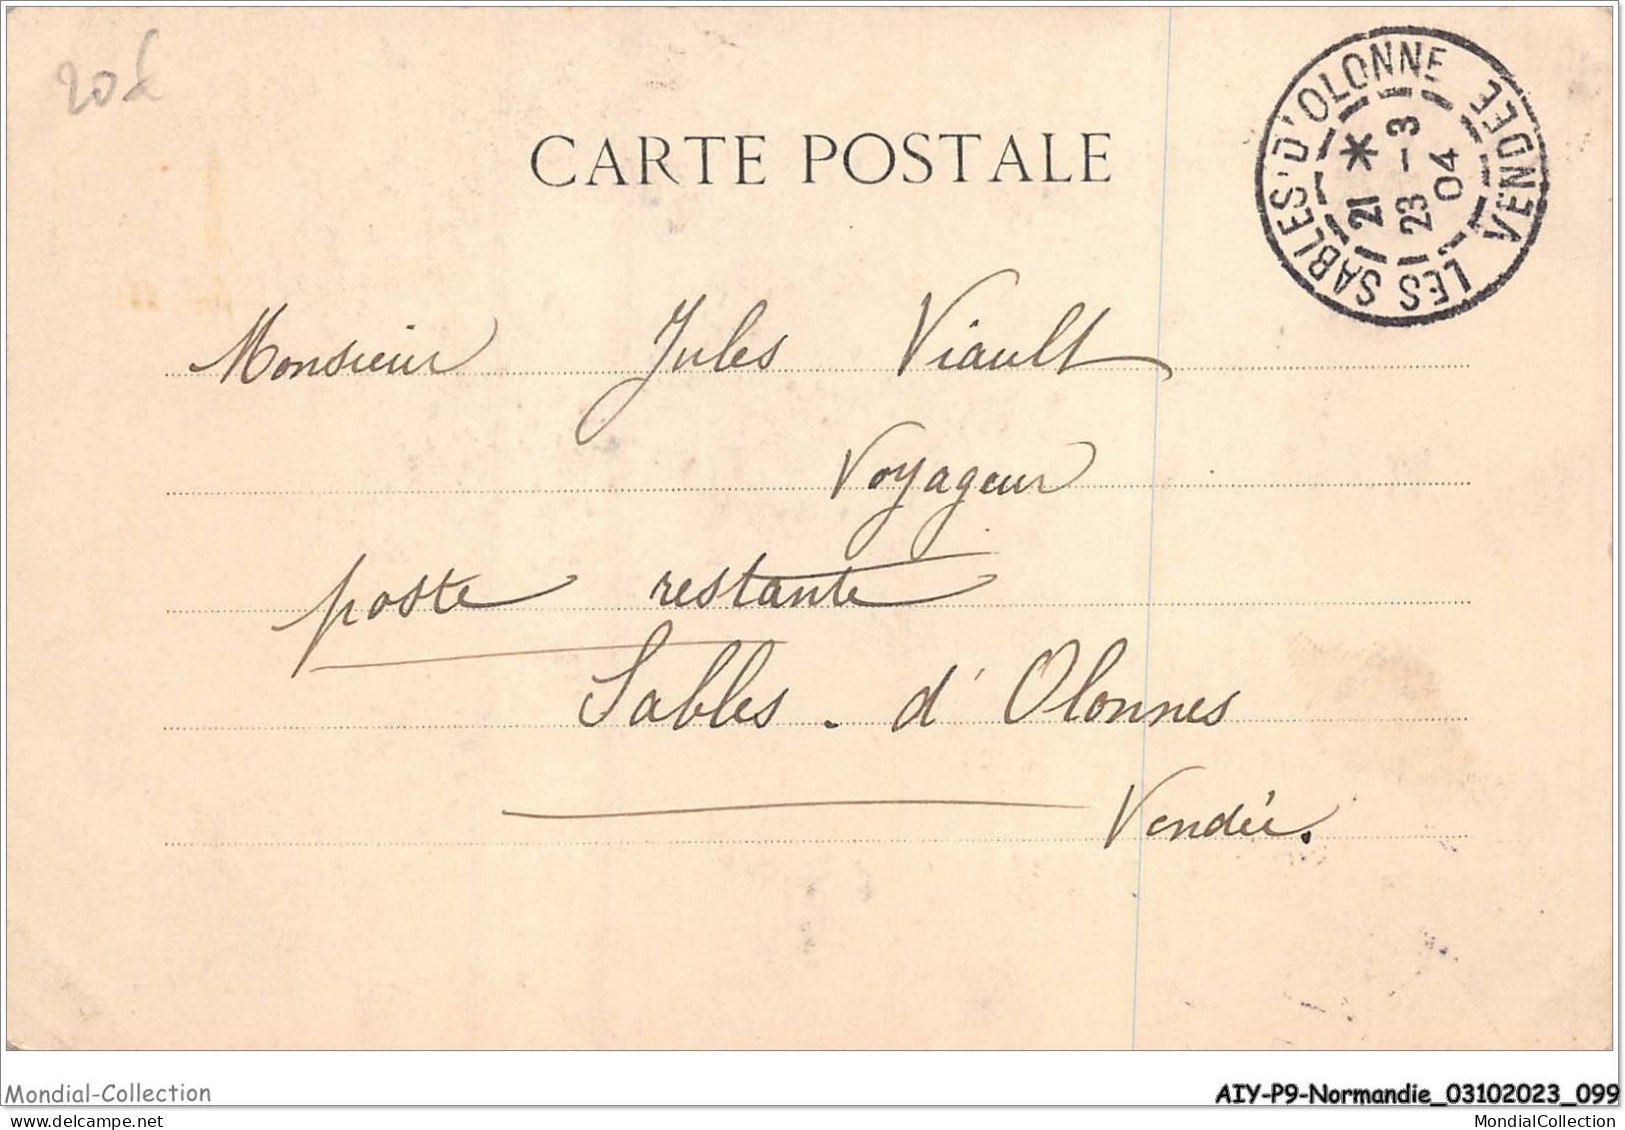 20£
CARTE POSTALE
LES SABLES-D'OLONNE VENDÉE
21 *
23 - 3
04
Monsieur Jules Viault
Voyageur
poste restante
Sables - d'Olonnes
Vendée.
Mondial-Collection
AIY-P9-Normandie_03102023_099
MondialCollection
MondialCollection